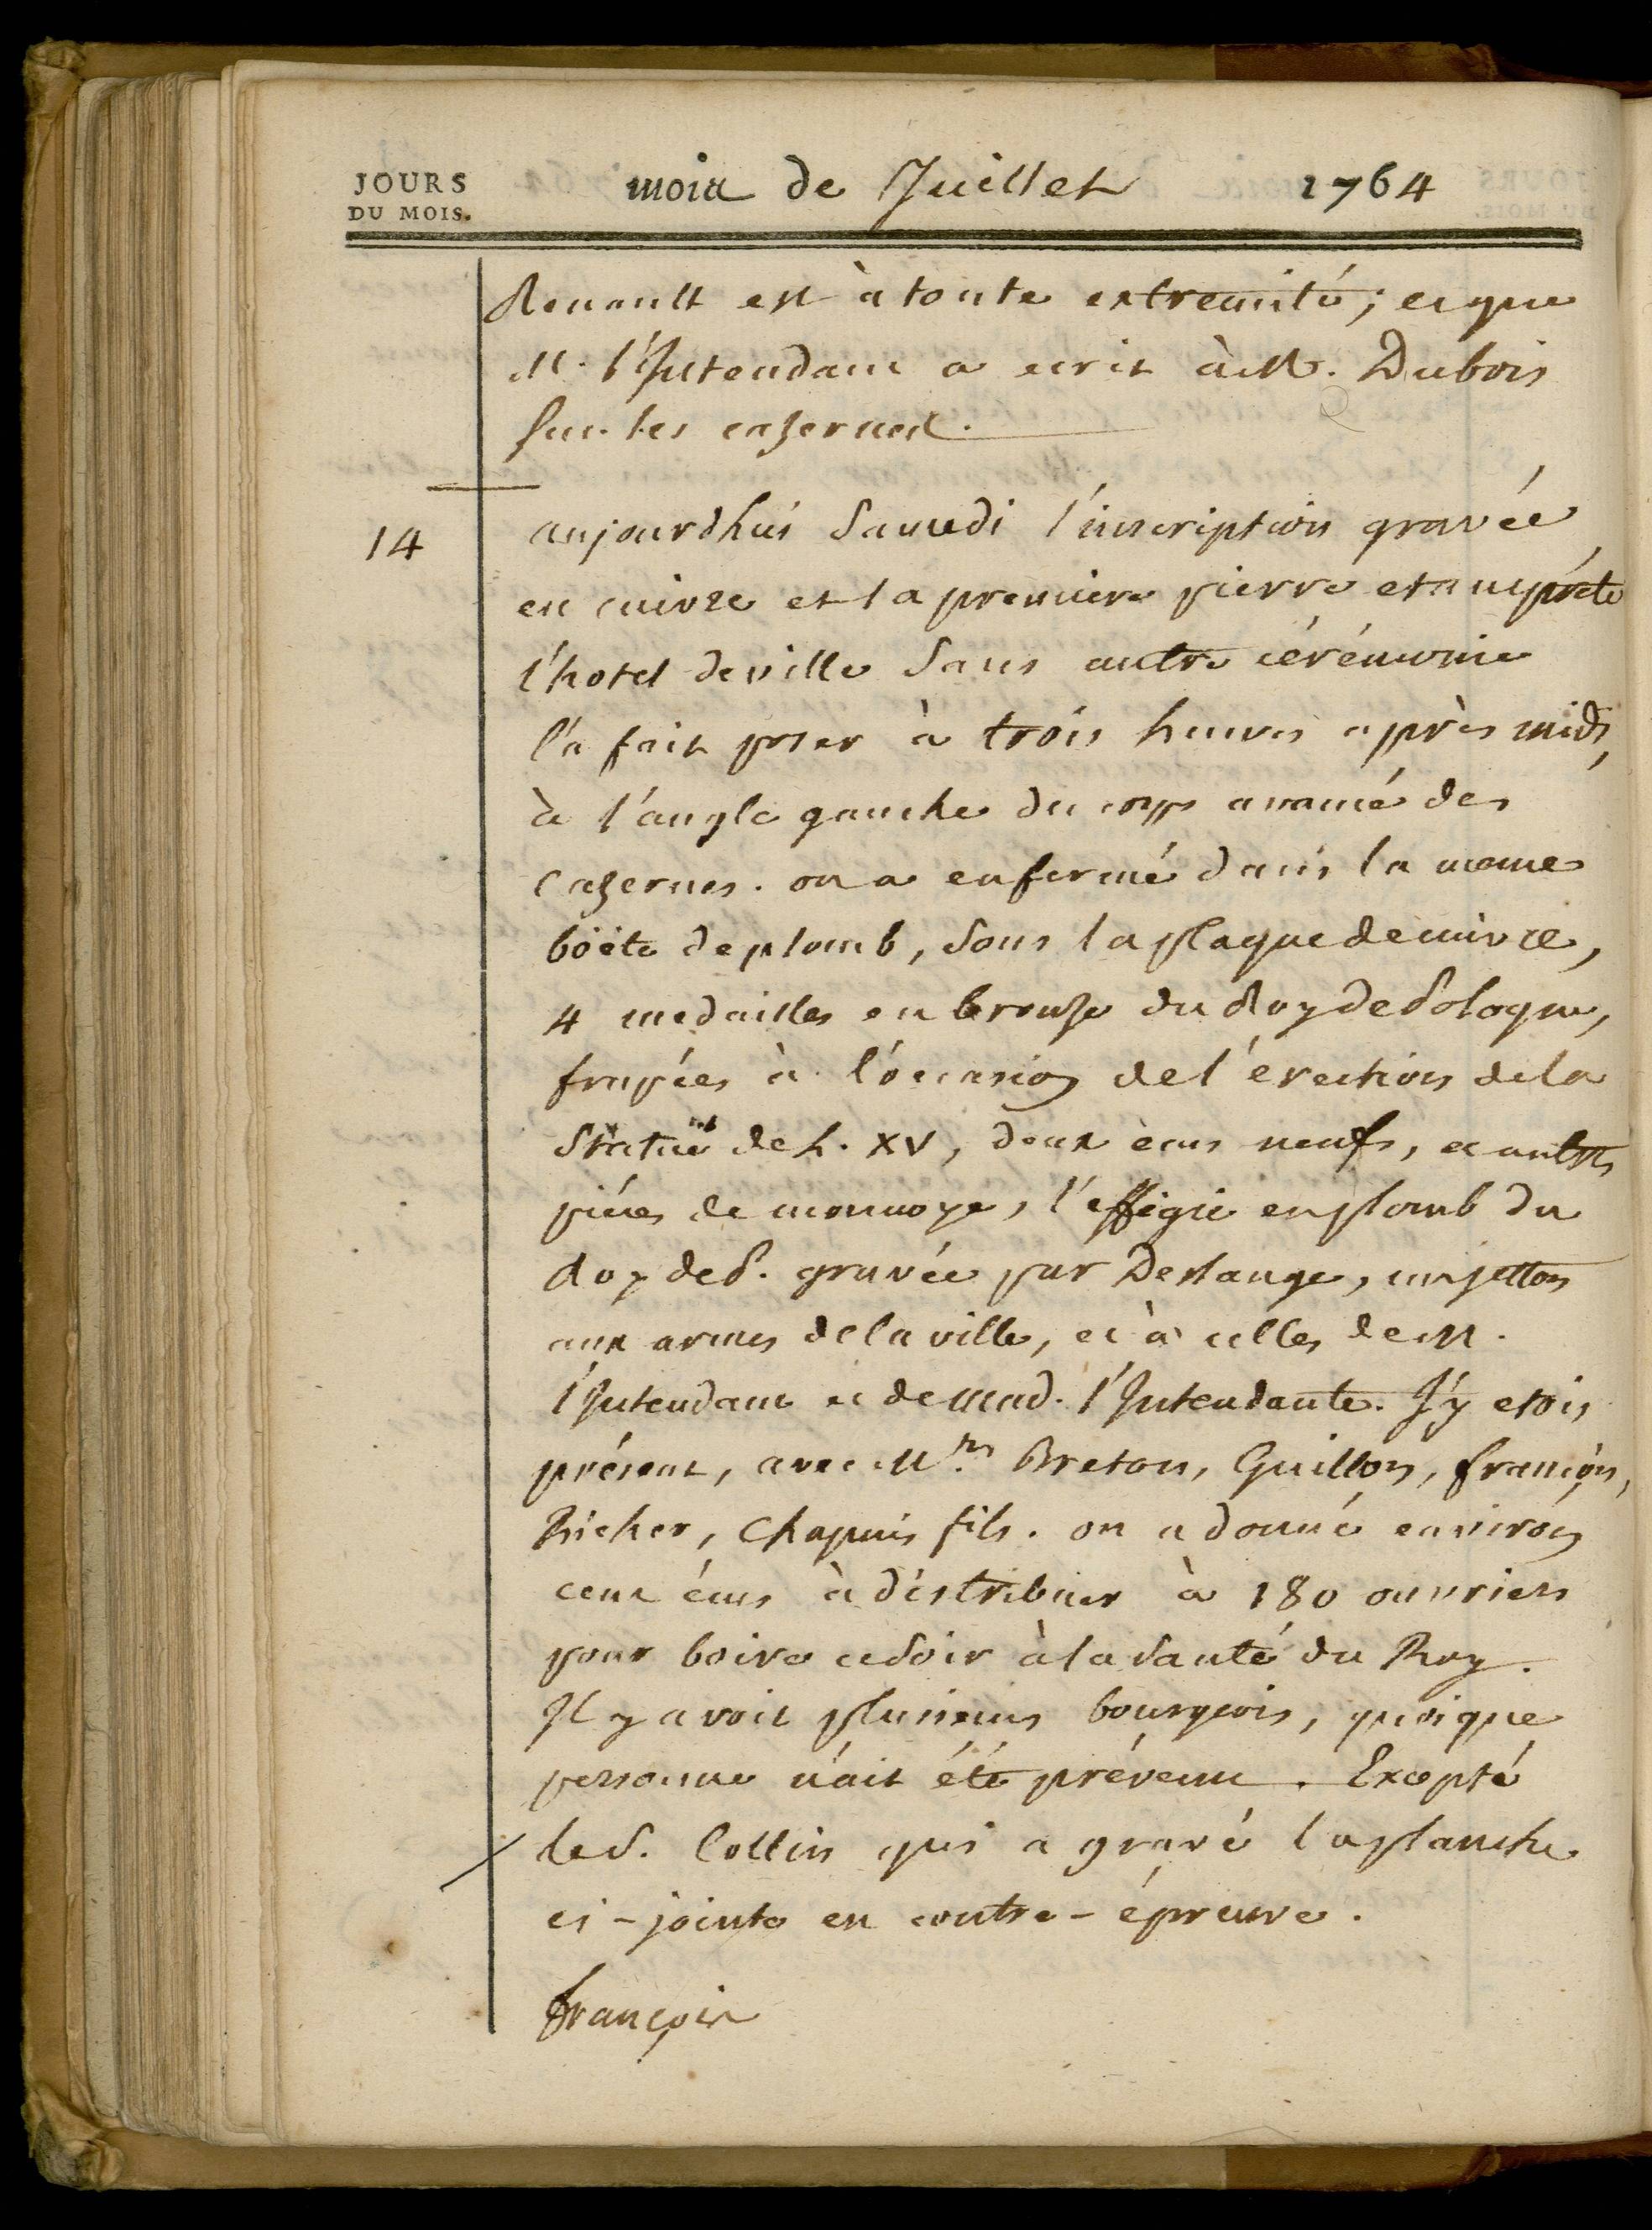 JOURS
DU MOIS.
mois de Juillet 1764
Renault est à toute extremité; et que
M. l'Intendant a ecrit à M. Dubois
sur les cazernes.
14
aujourd'hui Samedi l'inscription gravée
en cuivre et la premiere pierre etant prête
l'hotel de ville sans autre cérémonie
l'a fait poser à trois heures après midi,
à l'angle gauche du corps avancé des
cazernes. on a enfermé dans la meme
boëte de plomb, sous la plaque de cuivre,
4 medailles en bronze du Roy de Pologne,
frapées à l'occasion de l'érection de la
Statue de L. XV, deux écus neufs, et autres
piéces de monnoye, l'effigie en plomb du
Roy de P. gravée par Deslange, un jetton
aux armes de la ville, et à celles de M.
l'Intendant et de Mad. l'Intendante. J'y etois
présent, avec Mrs. Breton, Guillon, françois,
Richer, Chapuis fils. on a donné environ
cent écus à distribuer à 180 ouvriers
pour boire ce soir à la santé du Roy.
Il y avoit plusieurs bourgeois, quoique
personne n'ait été prévenu. Excepté
le S. Collin qui a gravé la planche
ci-jointe en contre-épreuve.
françois